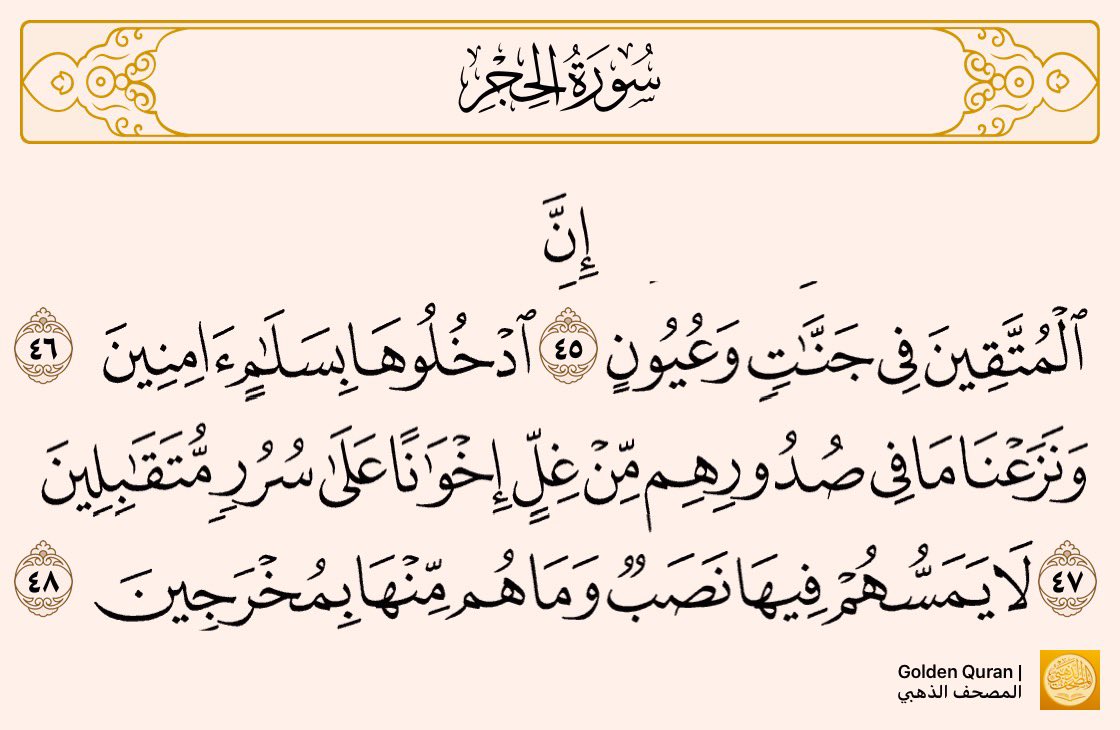 سُورَةُ الحِجْرِ
إِنَّ
ٱلۡمُتَّقِينَ فِى جَنَّـٰتٍ وَعُيُونٍ ٤٥ ٱدۡخُلُوهَا بِسَلَـٰمٍ ءَامِنِينَ ٤٦
وَنَزَعۡنَا مَا فِى صُدُورِهِم مِّنۡ غِلٍّ إِخۡوَٰنًا عَلَىٰ سُرُرٍ مُّتَقَـٰبِلِينَ
٤٧ لَا يَمَسُّهُمۡ فِيهَا نَصَبٌ وَمَا هُم مِّنۡهَا بِمُخۡرَجِينَ ٤٨
Golden Quran |
المصحف الذهبي